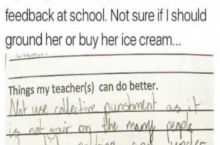 feedback at school. Not sure if I should
ground her or buy her ice cream...
Things my teacher(s) can do better.
Not use collective punishment as it
is not fair on the many people
and under